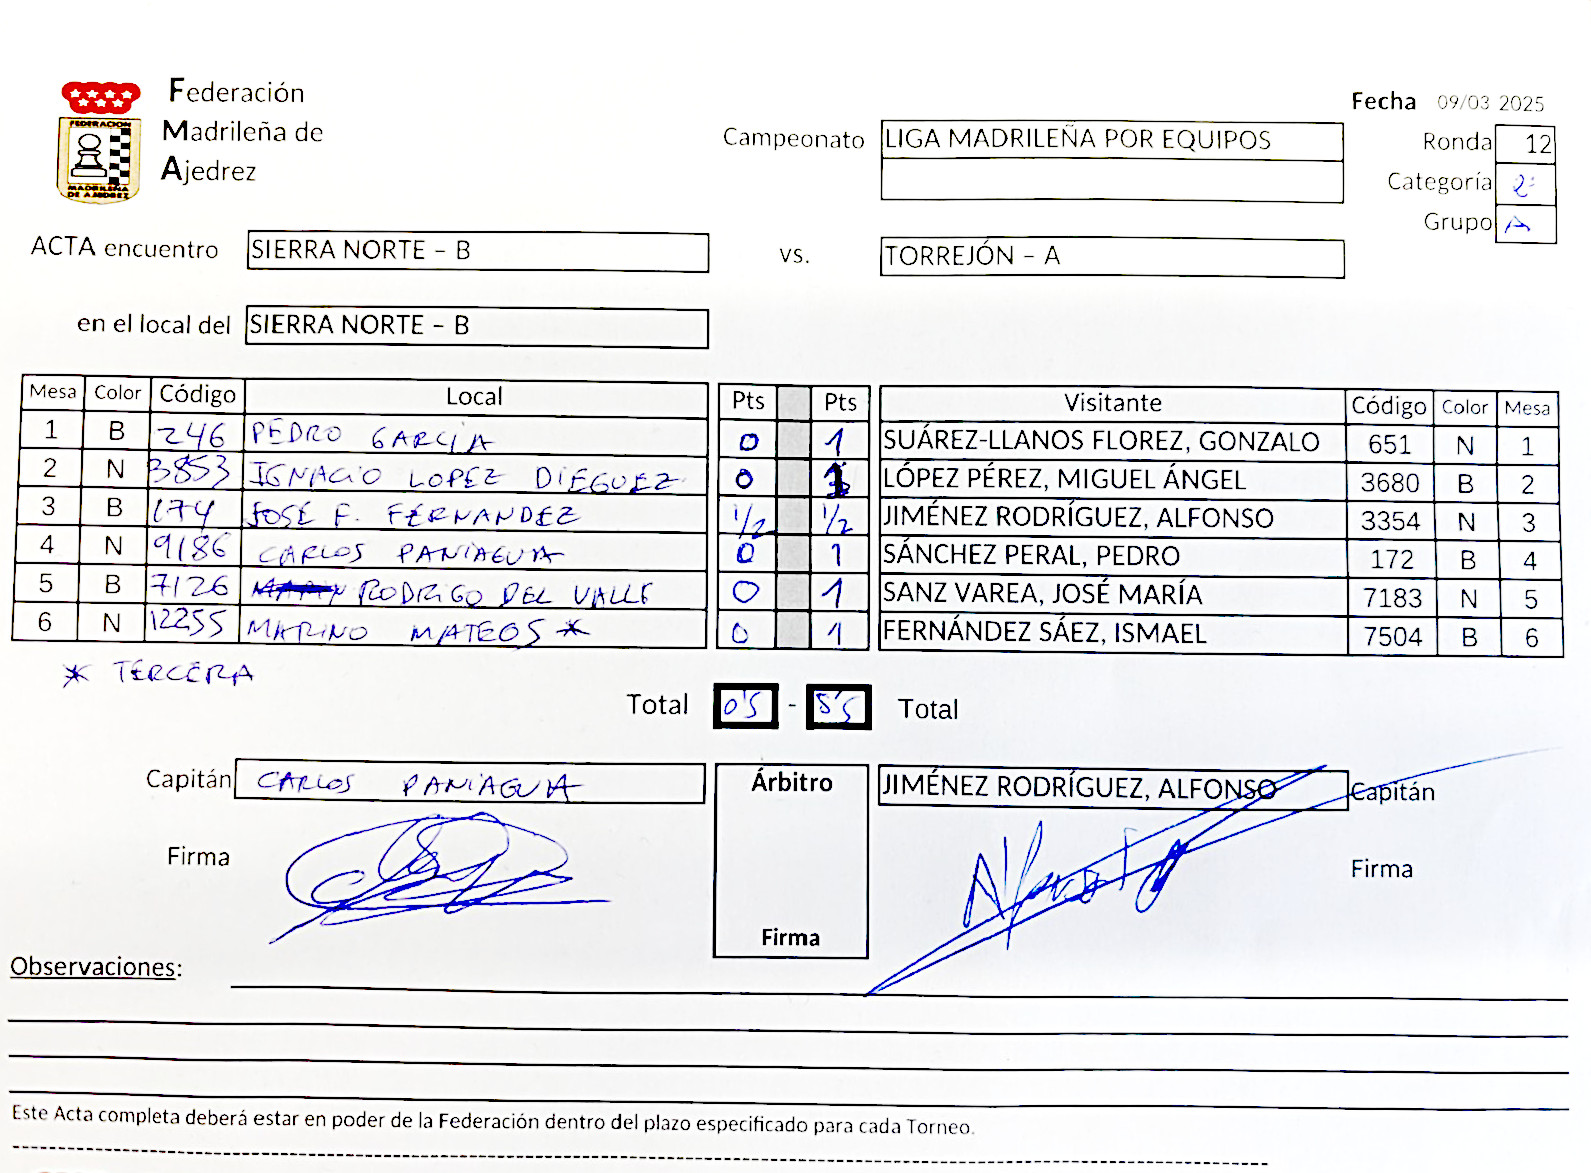 Federación
Madrileña de
Ajedrez
FEDERACION
MADRILEÑA
DE AJEDREZ
Fecha 09/03 2025
Campeonato LIGA MADRILEÑA POR EQUIPOS
Ronda 12
Categoría 2ª
Grupo A
ACTA encuentro SIERRA NORTE - B vs. TORREJÓN - A
en el local del SIERRA NORTE - B
Mesa Color Código Local Pts Pts Visitante Código Color Mesa
1 B 246 PEDRO GARCÍA 0 1 SUÁREZ-LLANOS FLOREZ, GONZALO 651 N 1
2 N 3853 IGNACIO LOPEZ DIEGUEZ 0 1 LÓPEZ PÉREZ, MIGUEL ÁNGEL 3680 B 2
3 B 174 JOSÉ F. FERNANDEZ 1/2 1/2 JIMÉNEZ RODRÍGUEZ, ALFONSO 3354 N 3
4 N 9186 CARLOS PANIAGUA 0 1 SÁNCHEZ PERAL, PEDRO 172 B 4
5 B 7126 RODRIGO DEL VALLE 0 1 SANZ VAREA, JOSÉ MARÍA 7183 N 5
6 N 12255 MARINO MATEOS * 0 1 FERNÁNDEZ SÁEZ, ISMAEL 7504 B 6
* TERCERA
Total 0'5 - 5'5 Total
Capitán CARLOS PANIAGUA Árbitro JIMÉNEZ RODRÍGUEZ, ALFONSO Capitán
Firma Firma Firma
Alfonso
Observaciones:
Este Acta completa deberá estar en poder de la Federación dentro del plazo especificado para cada Torneo.